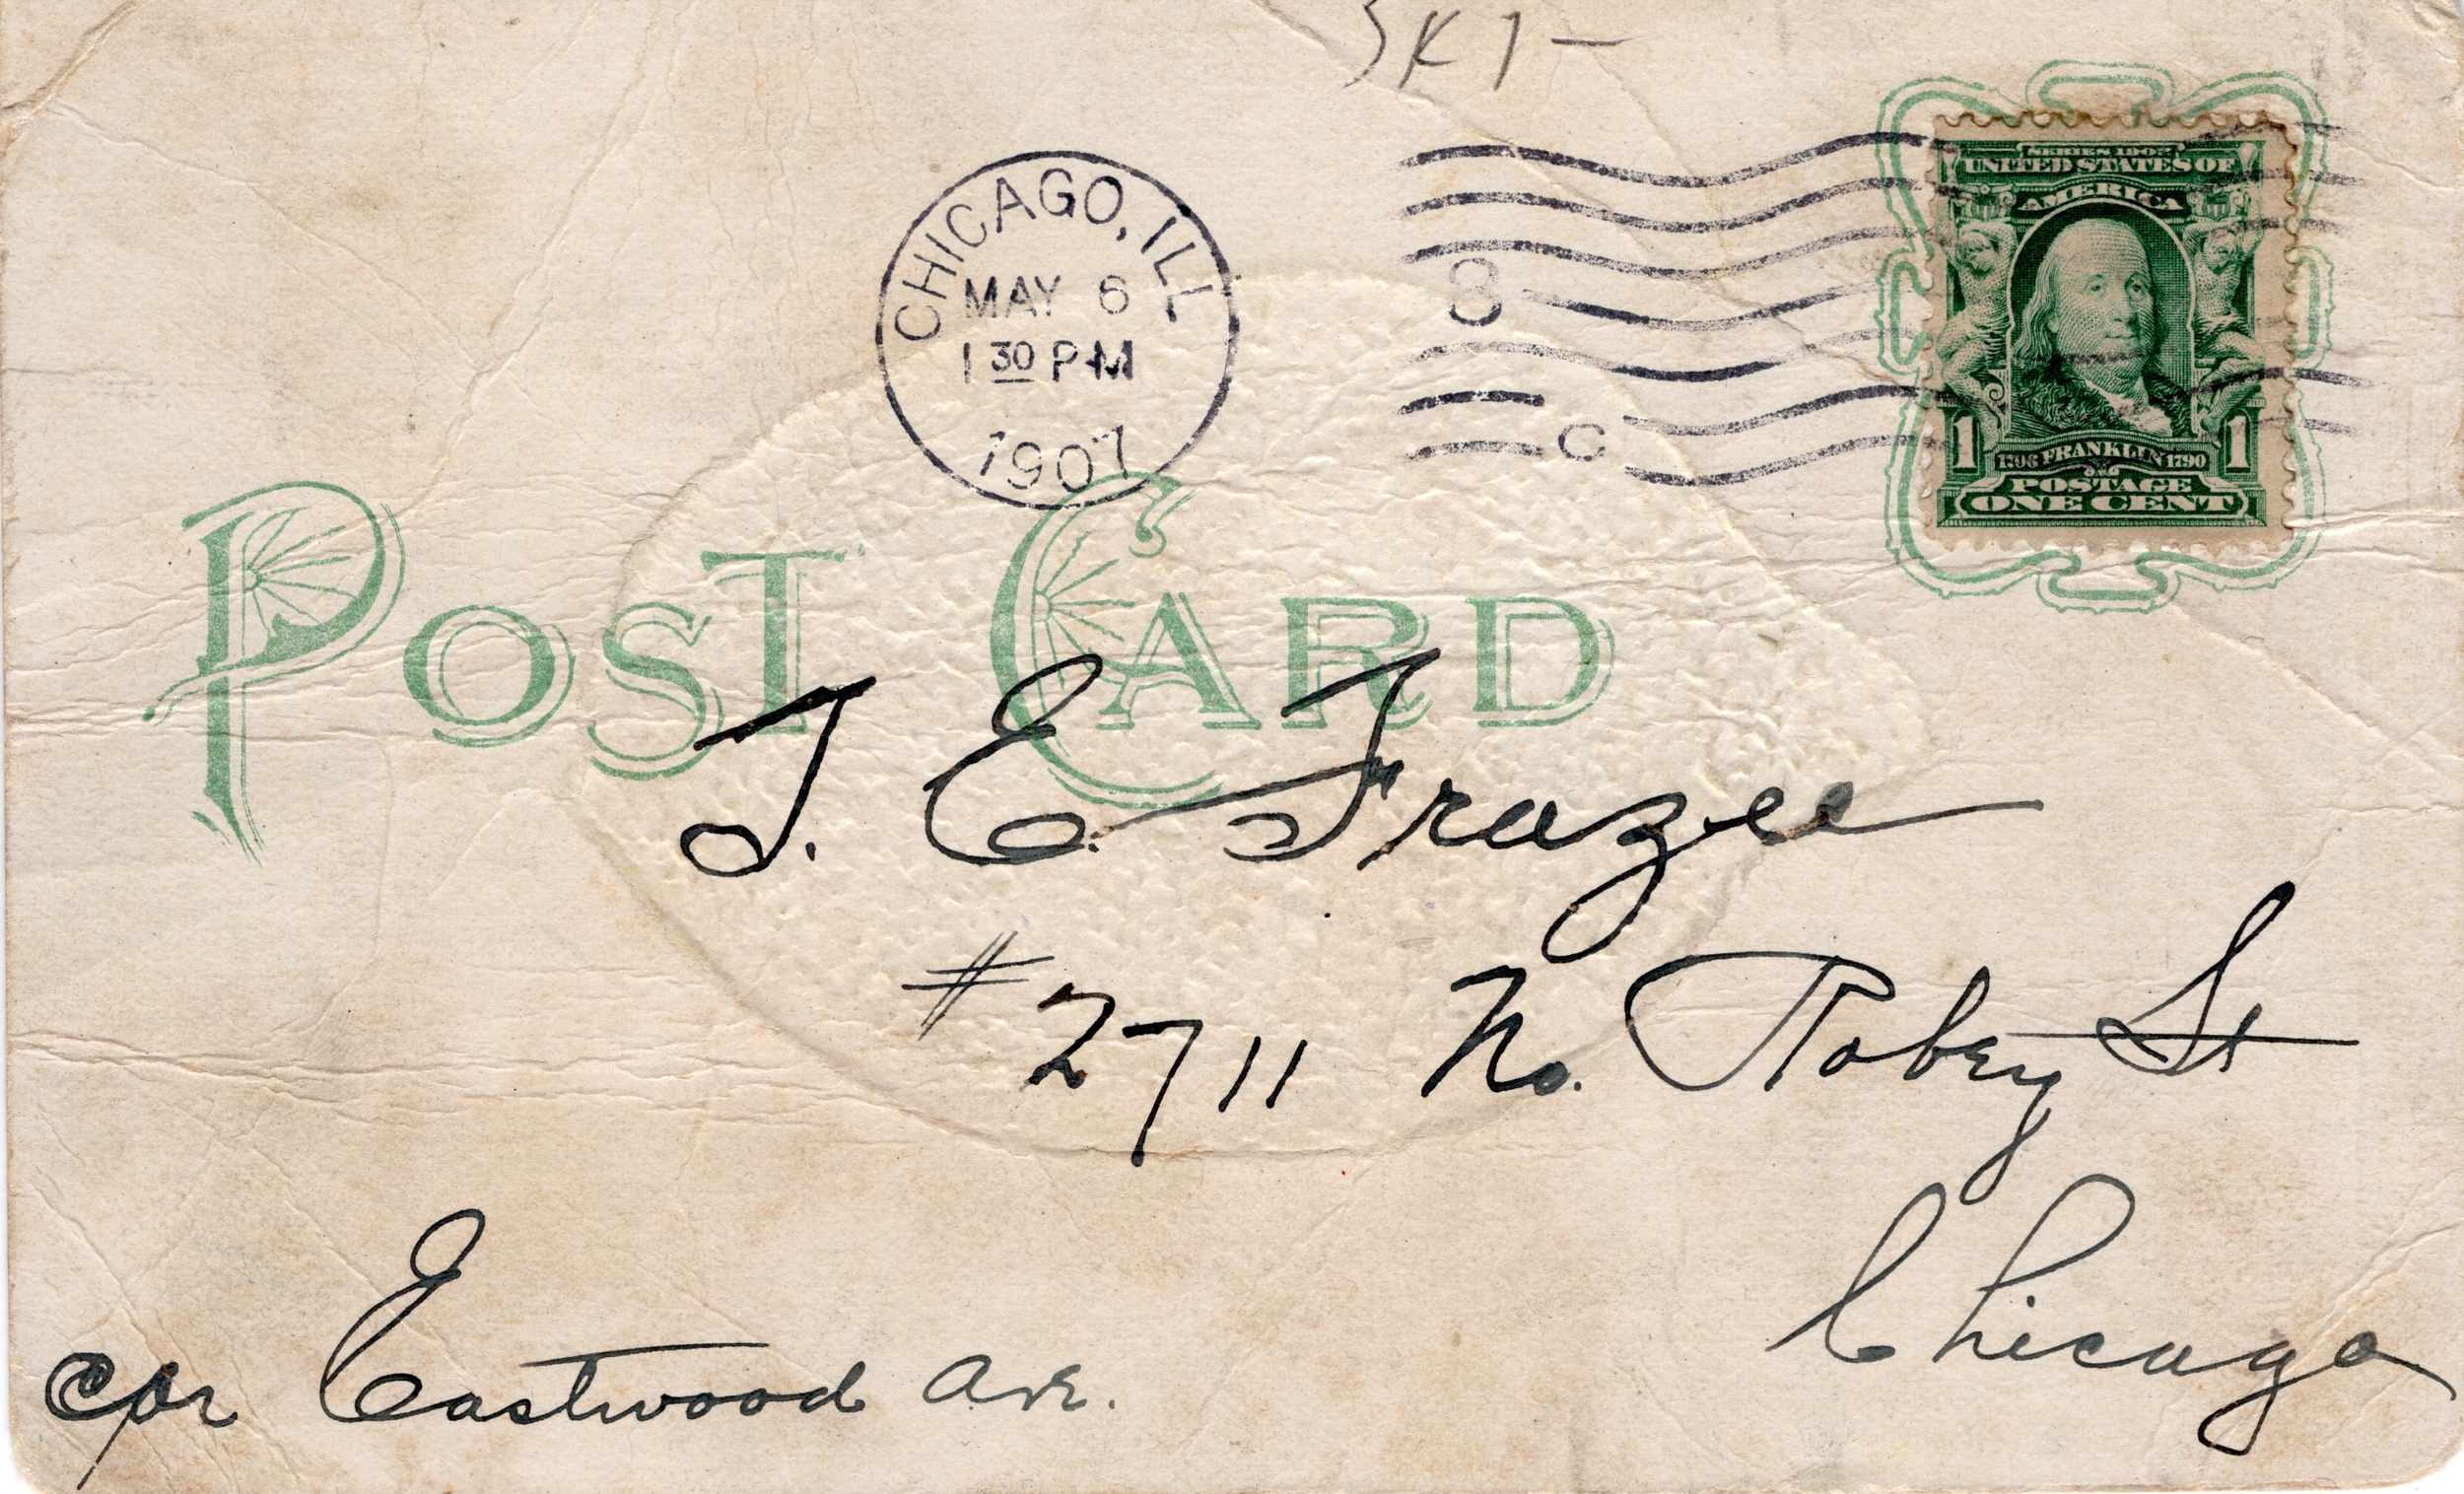 CHICAGO, ILL
MAY 6
1 30 PM
1907
8
C
SERIES 1902
UNITED STATES OF
AMERICA
1 1
FRANKLIN 1790
POSTAGE
ONE CENT
POST CARD
J. E. Frazee
# 2711 No. Robey St
Chicago
Cor Eastwood Ave.